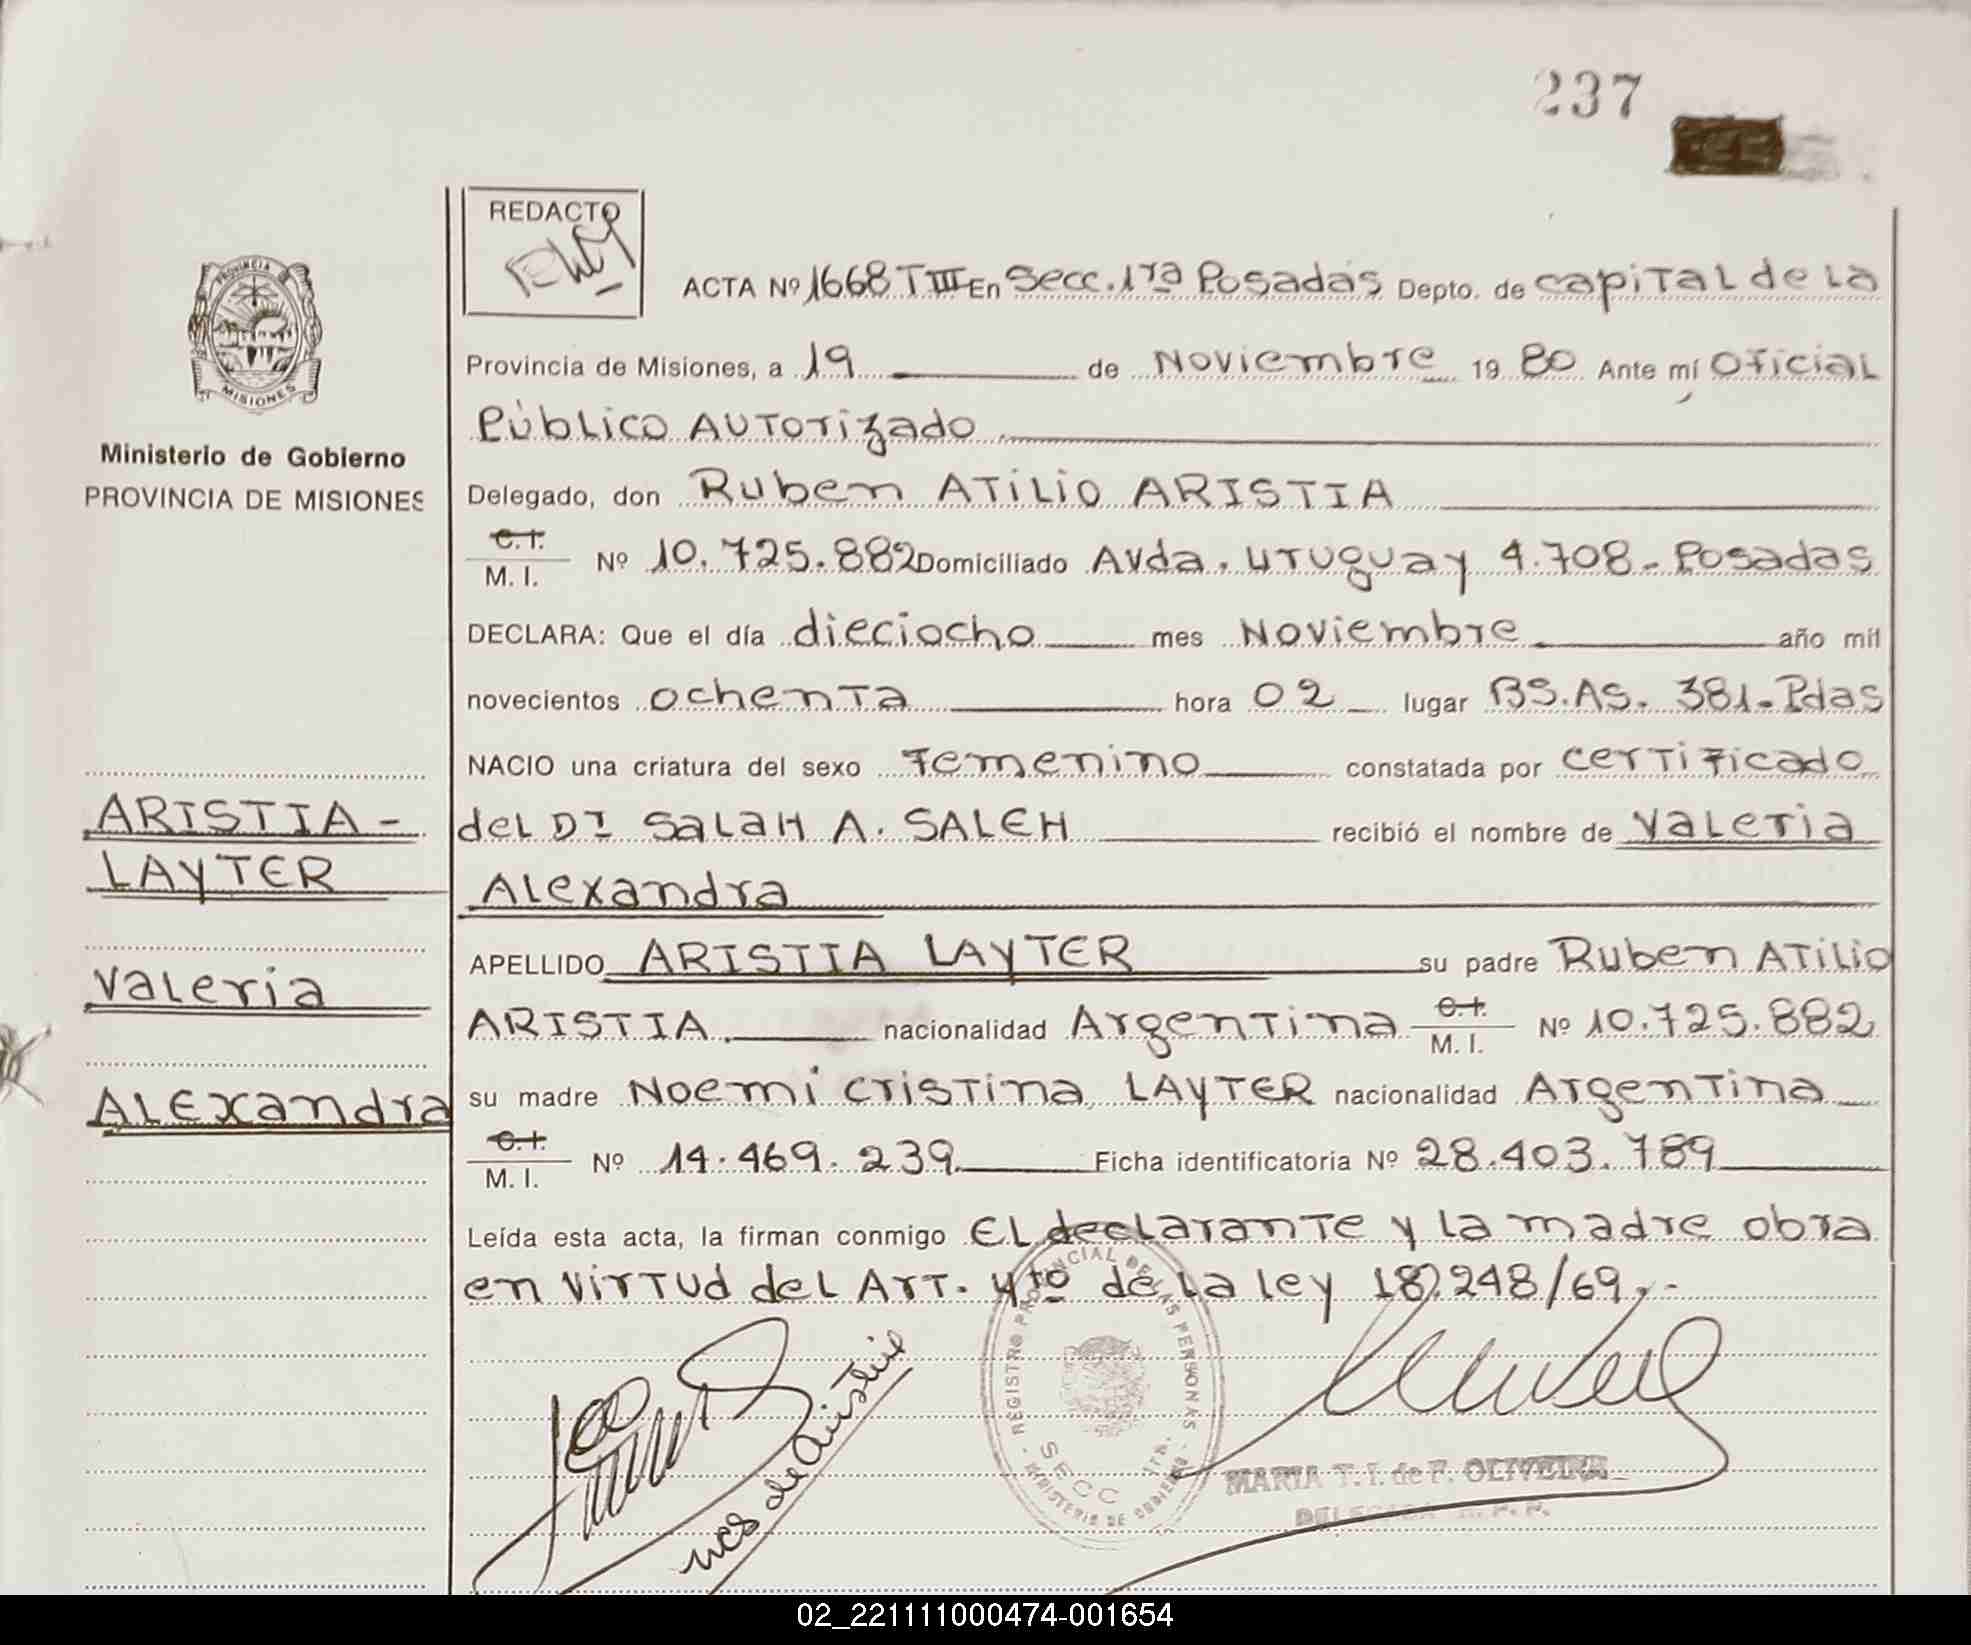 237
REDACTO
ACTA Nº 1668 T III En Secc. 1ra Posadas Depto. de capital de la
PROVINCIA
MISIONES
Provincia de Misiones, a 19 de Noviembre 1980 Ante mí Oficial
Público Autorizado
Ministerio de Gobierno
PROVINCIA DE MISIONES
Delegado, don Ruben Atilio ARISTIA
C.I.
M. I. Nº 10.725.882 Domiciliado Avda. Uruguay 4.708 - Posadas
DECLARA: Que el día dieciocho mes Noviembre año mil
novecientos ochenta hora 02 lugar BS.AS. 381 - Pdas
NACIO una criatura del sexo Femenino constatada por certificado
ARISTIA -
del Dr SALAH A. SALEH recibió el nombre de Valeria
LAYTER
Alexandra
APELLIDO ARISTIA LAYTER su padre Ruben Atilio
Valeria
ARISTIA nacionalidad Argentina C.I.
M. I. Nº 10.725.882
Alexandra
su madre Noemi cristina LAYTER nacionalidad Argentina
C.I.
M. I. Nº 14.469.239 Ficha identificatoria Nº 28.403.789
Leída esta acta, la firman conmigo El declarante y la madre obra
en virtud del Art. 4to de la ley 18.248/69.-
REGISTRO PROVINCIAL DE LAS PERSONAS
SECC 1ra.
MINISTERIO DE GOBIERNO
de Aristia
MARIA T. I. de F. OLIVEIRA
02_221111000474-001654